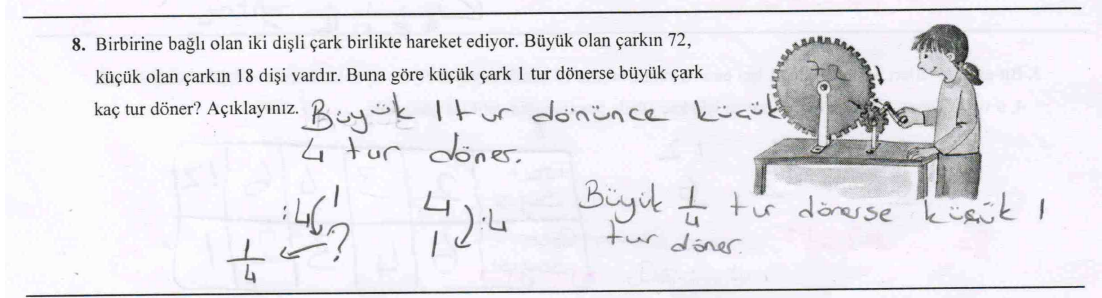 8. Birbirine bağlı olan iki dişli çark birlikte hareket ediyor. Büyük olan çarkın 72,
küçük olan çarkın 18 dişi vardır. Buna göre küçük çark 1 tur dönerse büyük çark
kaç tur döner? Açıklayınız.
Büyük 1 tur dönünce küçük
4 tur döner.
:4 1 4 :4
1/4 ? 1
Büyük 1/4 tur dönerse küçük 1
tur döner.